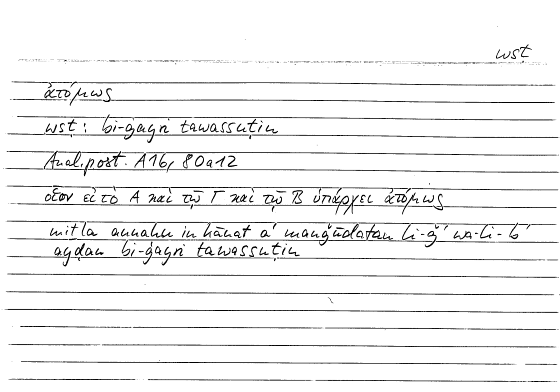 wsṭ
ἀτόμως
wsṭ: bi-ġayri tawassuṭin
Anal. post. A16, 80a12
οἷον εἰ τὸ Α καὶ τῷ Γ καὶ τῷ Β ὑπάρχει ἀτόμως
miṯla annahu in kānat a᾽ mawǧūdatan li-ǧ᾽ wa-li-b᾽
ayḍan bi-ġayri tawassuṭin